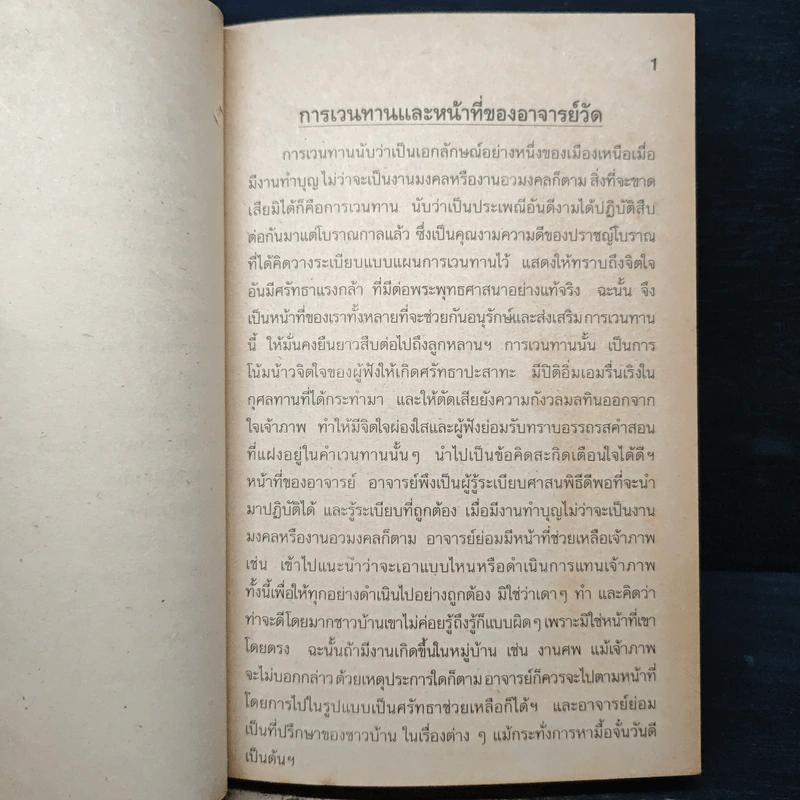 1
การเวนทานและหน้าที่ของอาจารย์วัด
การเวนทานนับว่าเป็นเอกลักษณ์อย่างหนึ่งของเมืองเหนือเมื่อ
มีงานทำบุญ ไม่ว่าจะเป็นงานมงคลหรืองานอวมงคลก็ตาม สิ่งที่จะขาด
เสียมิได้ก็คือการเวนทาน นับว่าเป็นประเพณีอันดีงามได้ปฏิบัติสืบ
ต่อกันมาแต่โบราณกาลแล้ว ซึ่งเป็นคุณงามความดีของปราชญ์โบราณ
ที่ได้คิดวางระเบียบแบบแผนการเวนทานไว้ แสดงให้ทราบถึงจิตใจ
อันมีศรัทธาแรงกล้า ที่มีต่อพระพุทธศาสนาอย่างแท้จริง ฉะนั้น จึง
เป็นหน้าที่ของเราทั้งหลายที่จะช่วยกันอนุรักษ์และส่งเสริม การเวนทาน
นี้ ให้มั่นคงยืนยาวสืบต่อไปถึงลูกหลานฯ การเวนทานนั้น เป็นการ
โน้มน้าวจิตใจของผู้ฟังให้เกิดศรัทธาปะสาทะ มีปิติอิ่มเอมรื่นเริงใน
กุศลทานที่ได้กระทำมา และให้ตัดเสียยังความกังวลมลทินออกจาก
ใจเจ้าภาพ ทำให้มีจิตใจผ่องใสและผู้ฟังย่อมรับทราบอรรถรสคำสอน
ที่แฝงอยู่ในคำเวนทานนั้นๆ นำไปเป็นข้อคิดสะกิดเตือนใจได้ดีฯ
หน้าที่ของอาจารย์ อาจารย์พึงเป็นผู้รู้ระเบียบศาสนพิธีดีพอที่จะนำ
มาปฏิบัติได้ และรู้ระเบียบที่ถูกต้อง เมื่อมีงานทำบุญไม่ว่าจะเป็นงาน
มงคลหรืองานอวมงคลก็ตาม อาจารย์ย่อมมีหน้าที่ช่วยเหลือเจ้าภาพ
เช่น เข้าไปแนะนำว่าจะเอาแบบไหนหรือดำเนินการแทนเจ้าภาพ
ทั้งนี้เพื่อให้ทุกอย่างดำเนินไปอย่างถูกต้อง มิใช่ว่าเดาๆ ทำ และคิดว่า
ท่าจะดีโดยมากชาวบ้านเขาไม่ค่อยรู้ถึงรู้ก็แบบผิดๆ เพราะมิใช่หน้าที่เขา
โดยตรง ฉะนั้นถ้ามีงานเกิดขึ้นในหมู่บ้าน เช่น งานศพ แม้เจ้าภาพ
จะไม่บอกกล่าว ด้วยเหตุประการใดก็ตาม อาจารย์ก็ควรจะไปตามหน้าที่
โดยการไปในรูปแบบเป็นศรัทธาช่วยเหลือก็ได้ฯ และอาจารย์ย่อม
เป็นที่ปรึกษาของชาวบ้าน ในเรื่องต่าง ๆ แม้กระทั่งการหามื้อจั๋นวันดี
เป็นต้นฯ